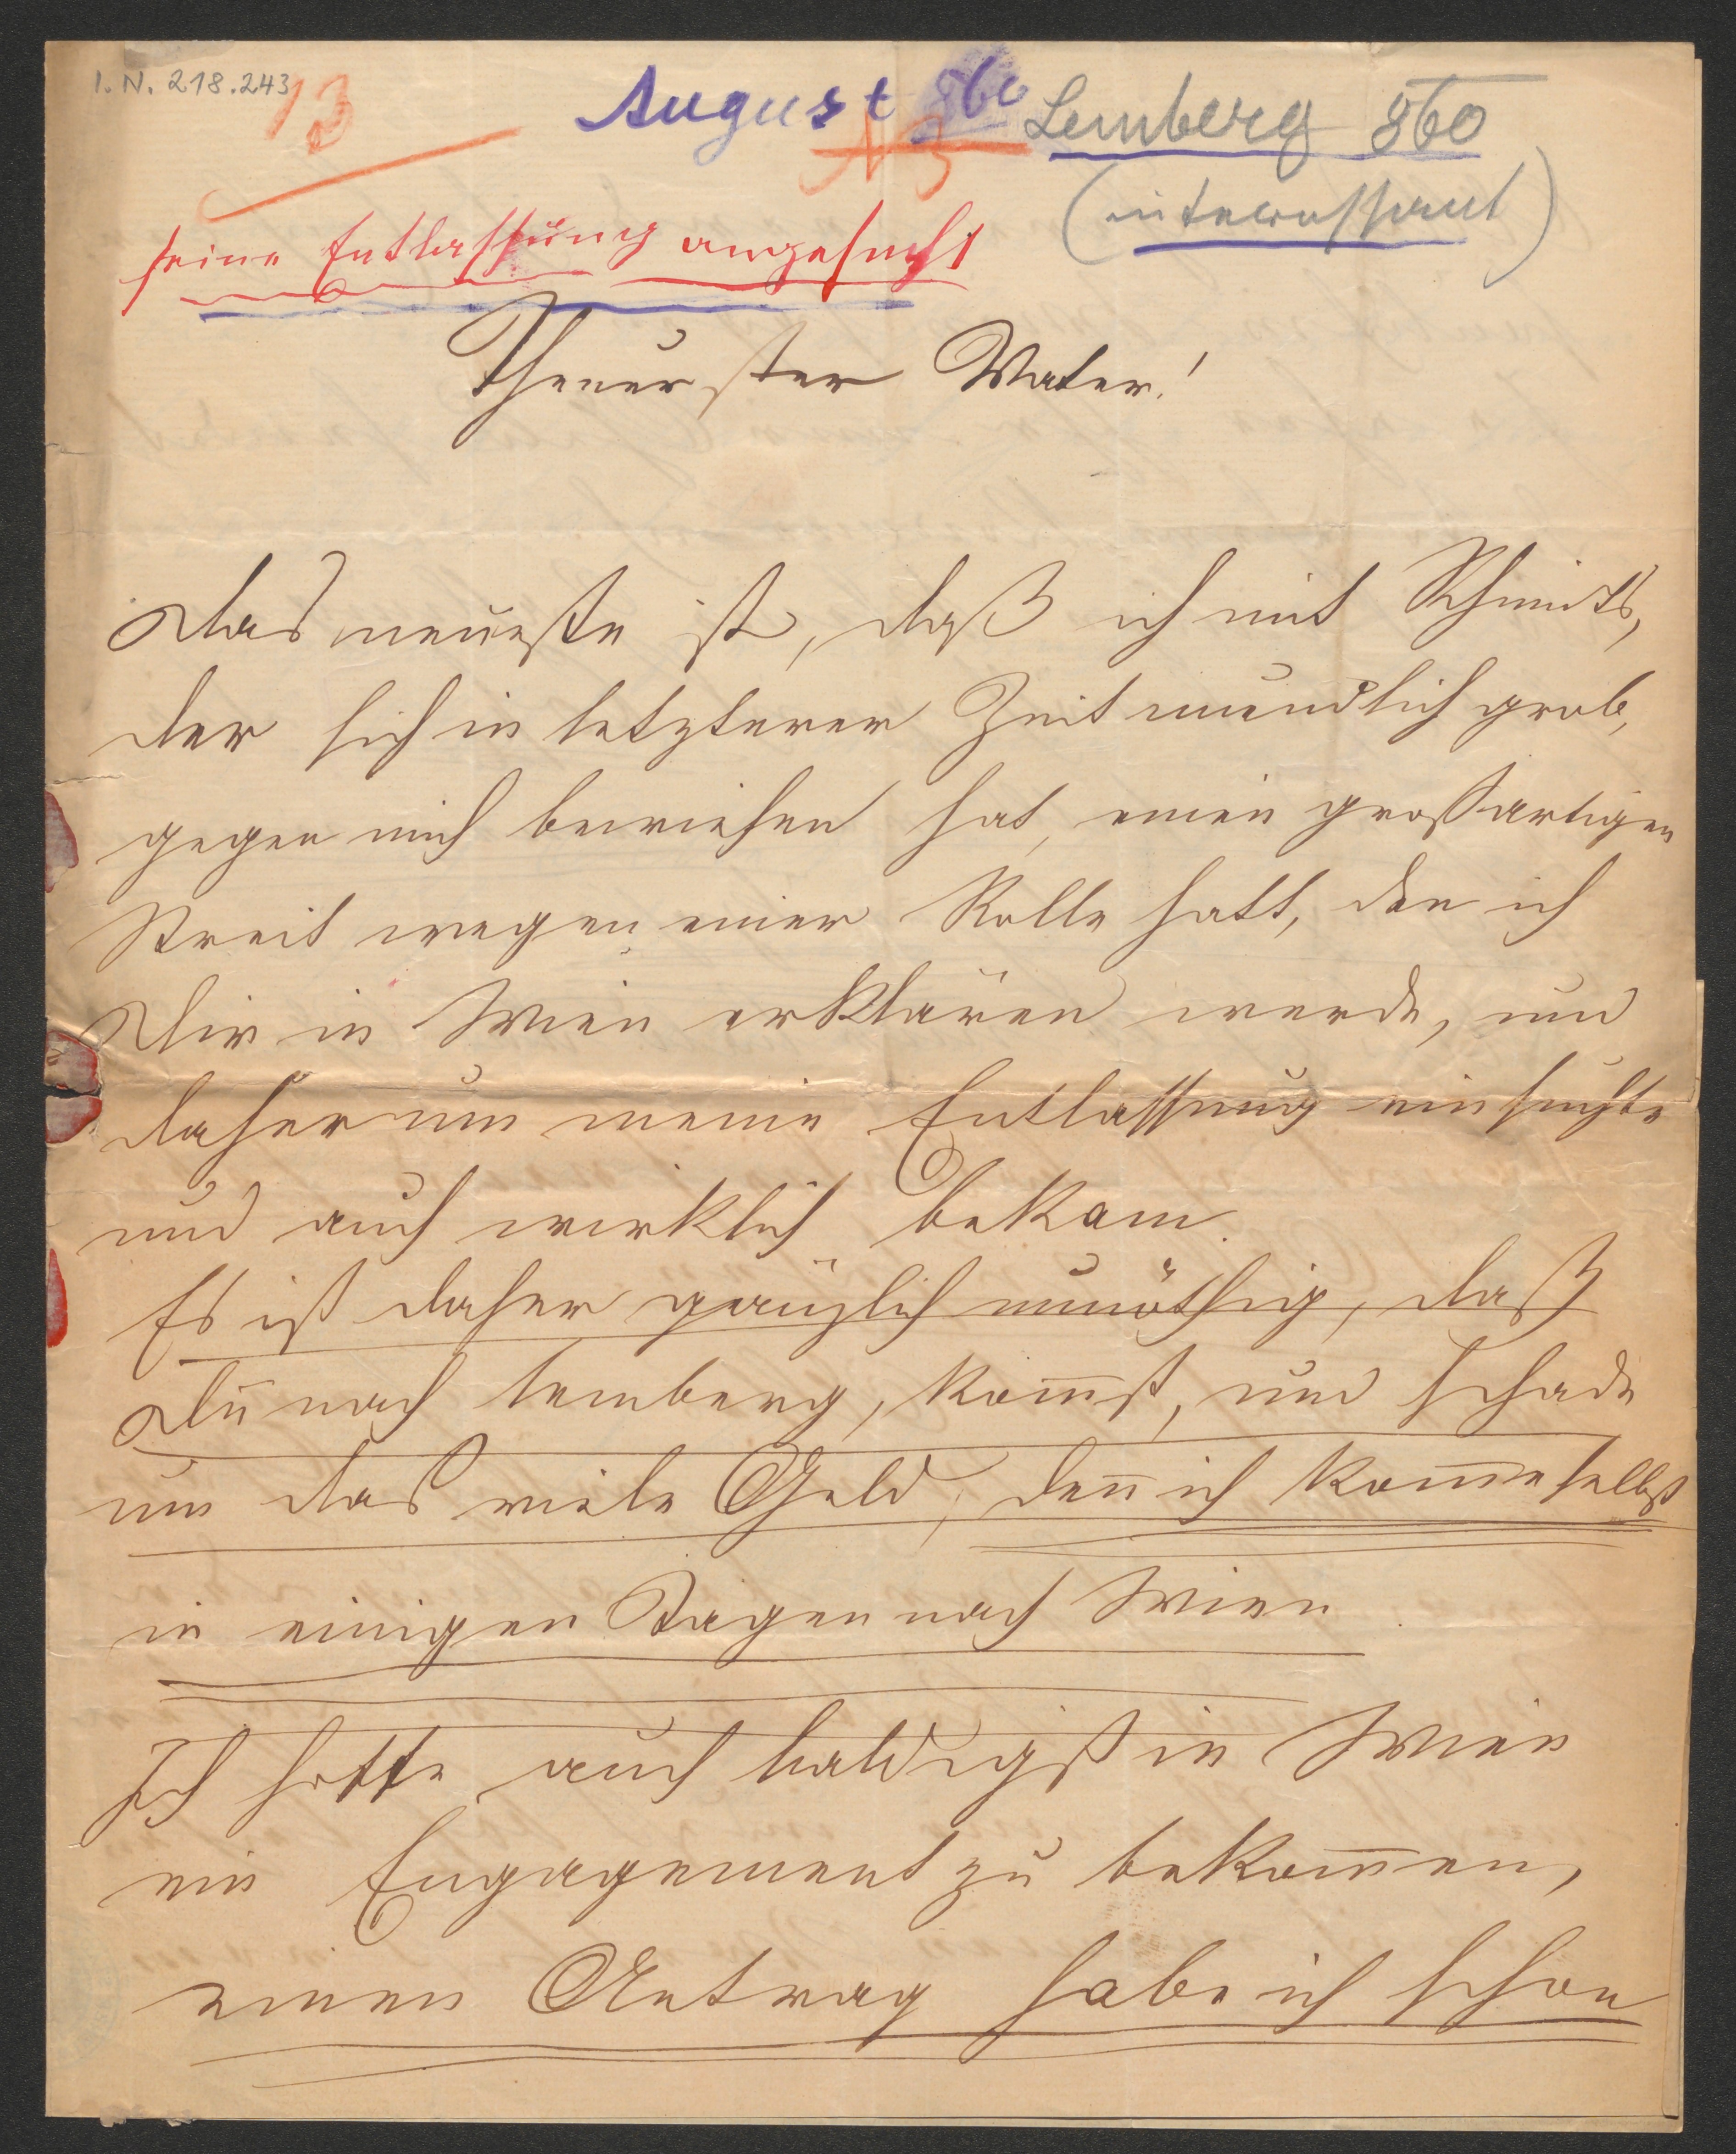 I. N. 218.243
13
August 860 Lemberg 860
N 3
(interessant)
seine Entlassung angesucht
Theuerster Vater!
Das neueste ist, daß ich mit Schmidts,
der sich in letzterer Zeit unendlich grob,
gegen mich beweisen hat, einen großartigen
Streit wegen einer Rolle hatt, den ich
Dir in Wien erklären werde, und
daher um meine Entlassung einsuchte
und auch wirklich bekam.
Es ist daher gänzlich unnöthig, daß
Du nach Lemberg, kom̅st, und schade
um das viele Geld, den̅ ich kom̅e selbst
in einigen Tagen nach Wien
Ich hoffe auch baldigst in Wien
ein Engagement zu bekom̅en,
einen Antrag habe ich schon